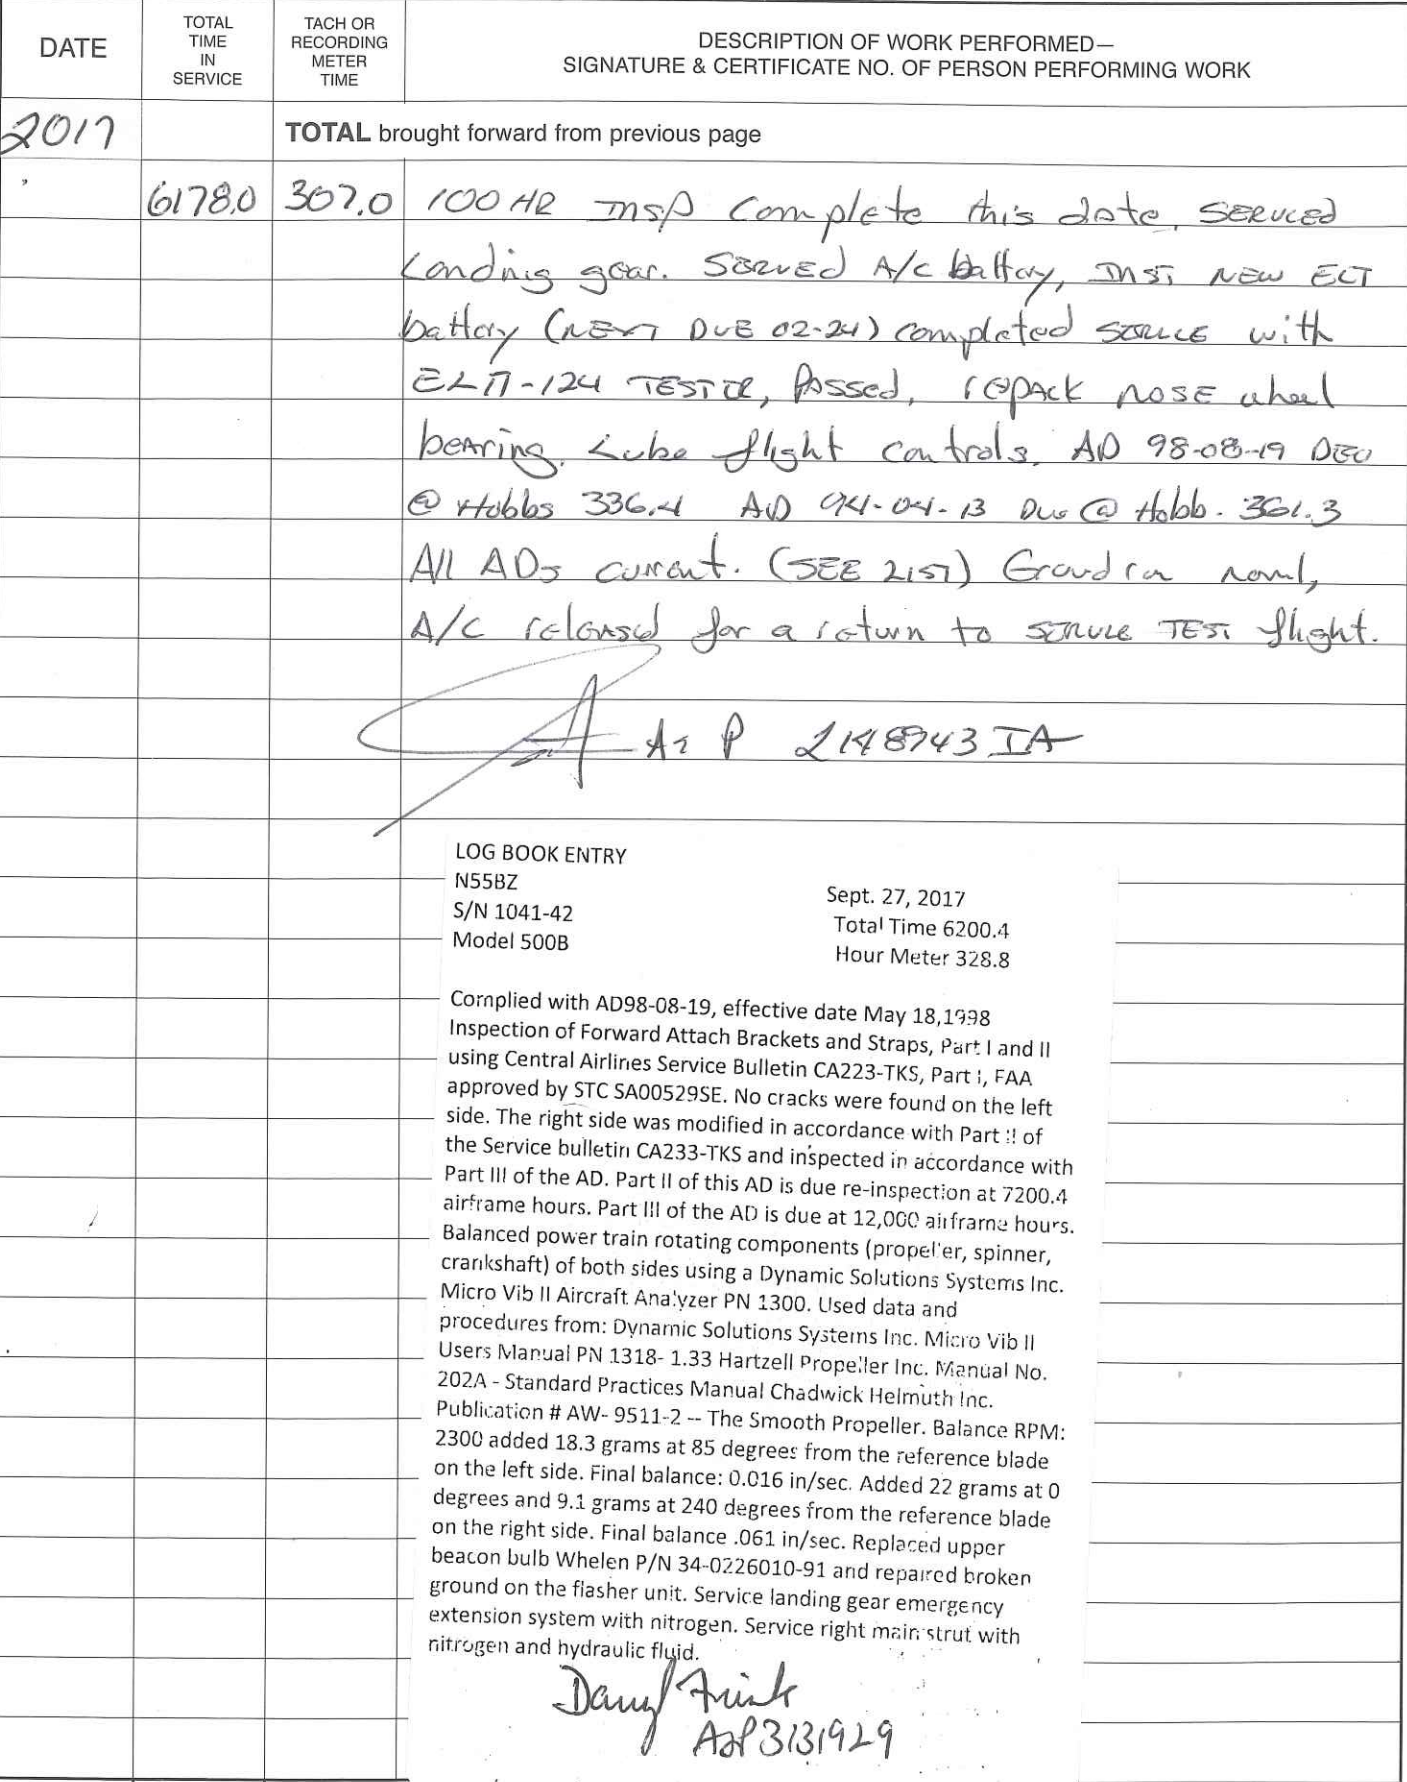 DATE
TOTAL TIME IN SERVICE
TACH OR RECORDING METER TIME
DESCRIPTION OF WORK PERFORMED—
SIGNATURE & CERTIFICATE NO. OF PERSON PERFORMING WORK
2017
TOTAL brought forward from previous page
6178.0 307.0 100 HR INSP Complete this date, SERVCED
Landing gear. SERVED A/C battery, INST NEW ELT
battery (NEXT DUE 02-24) completed SERVICE with
TESTER, PASSED, repack NOSE wheel
bearing. Lube flight controls. AD 98-08-19 DEU
@ Hobbs 336.4 AD 94-04-13 Due @ Hobb. 361.3
All ADs current. (SEE LIST) Ground run
A/C released for a return to SERVICE TEST flight.
A & P IA
LOG BOOK ENTRY
N55BZ
Sept. 27, 2017
S/N 1041-42
Total Time 6200.4
Model 500B
Hour Meter 328.8
Complied with AD98-08-19, effective date May 18,1998
Inspection of Forward Attach Brackets and Straps, Part I and II
using Central Airlines Service Bulletin CA223-TKS, Part I, FAA
approved by STC SA00529SE. No cracks were found on the left
side. The right side was modified in accordance with Part II of
the Service bulletin CA233-TKS and inspected in accordance with
Part III of the AD. Part II of this AD is due re-inspection at 7200.4
airframe hours. Part III of the AD is due at 12,000 airframe hours.
Balanced power train rotating components (propeller, spinner,
crankshaft) of both sides using a Dynamic Solutions Systems Inc.
Micro Vib II Aircraft Analyzer PN 1300. Used data and
procedures from: Dynamic Solutions Systems Inc. Micro Vib II
Users Manual PN 1318- 1.33 Hartzell Propeller Inc. Manual No.
202A - Standard Practices Manual Chadwick Helmuth Inc.
Publication # AW- 9511-2 -- The Smooth Propeller. Balance RPM:
2300 added 18.3 grams at 85 degrees from the reference blade
on the left side. Final balance: 0.016 in/sec. Added 22 grams at 0
degrees and 9.1 grams at 240 degrees from the reference blade
on the right side. Final balance .061 in/sec. Replaced upper
beacon bulb Whelen P/N 34-0226010-91 and repaired broken
ground on the flasher unit. Service landing gear emergency
extension system with nitrogen. Service right main strut with
nitrogen and hydraulic fluid.
Darryl
A&P 3131929